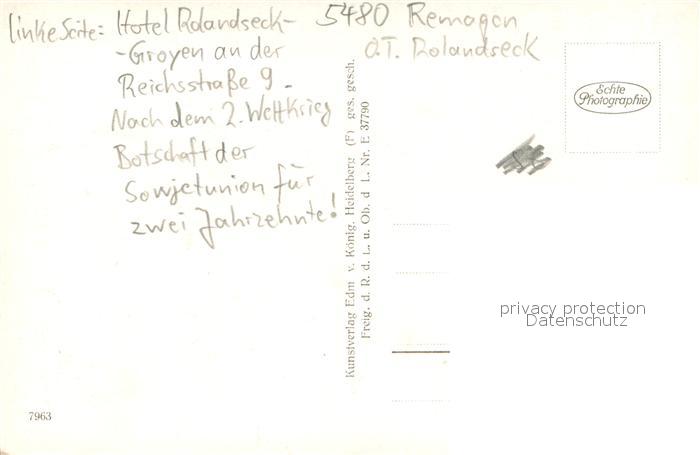 linke Seite: Hotel Rolandseck-
-Groyen an der
Reichsstraße 9.
Nach dem 2. Weltkrieg
Botschaft der
Sowjetunion für
zwei Jahrzehnte!
5480 Remagen
O.T. Rolandseck
Echte
Photographie
Kunstverlag Edm v. König, Heidelberg (F) ges. gesch.
Freig. d. R. d. L. u. Ob. d L. Nr. E 37790
privacy protection
Datenschutz
7963